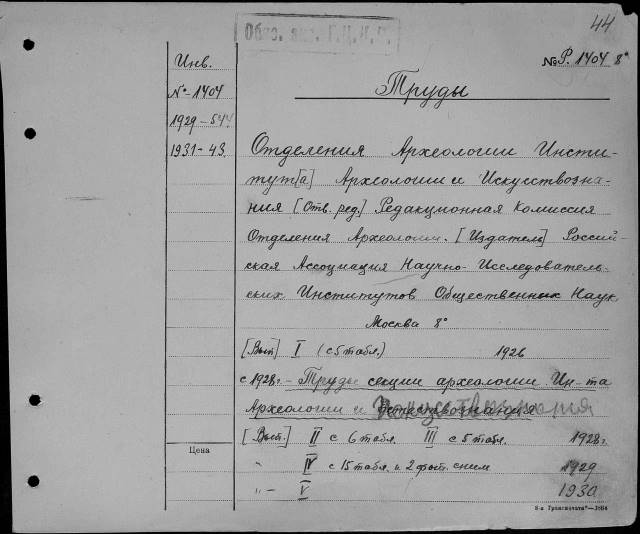 44
Обяз. экз. Г.Ц.К.П.
№ Р. 1404 8°
Труды
Инв.
№ - 1404
1929 - 544
1931 - 43.
Отделения Археологии Инсти-
тут[а] Археологии и Искусствозна-
ния [Отв. ред.] Редакционная Комиссия
Отделения Археологии. [Издатель] Россий-
ская Ассоциация Научно-Исследователь-
ских Институтов Общественных Наук
Москва 8°
[Вып] I (с 5 табл.) 1926
с 1928 г. - Труды секции археологии Ин-та
Археологии и Искусствознания
[Вып.] II с 6 табл. III с 5 табл. 1928 г.
" IV с 15 табл. и 2 фот. сним 1929
" - V 1930
Цена